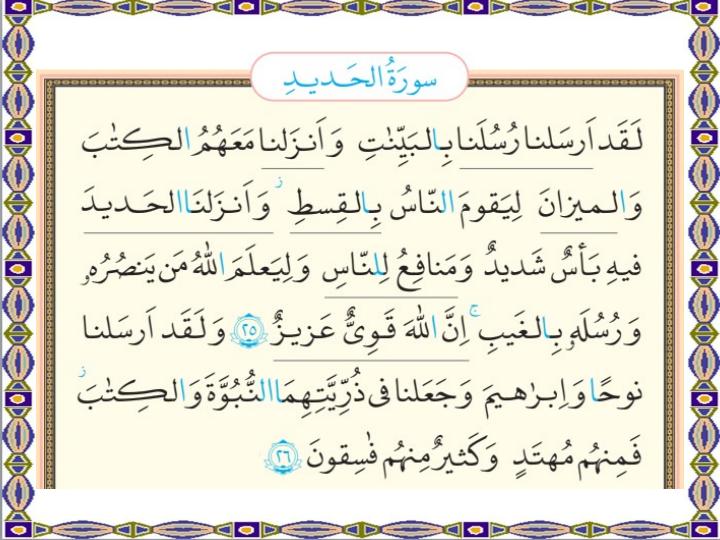 سورَةُ الحَديدِ
لَقَد اَرسَلنا رُسُلَنا بِالبَيِّنٰتِ وَ اَنزَلنا مَعَهُمُ الكِتٰبَ
وَ الميزانَ لِيَقومَ النّاسُ بِالقِسطِ ز وَ اَنزَلنَا الحَديدَ
فيهِ بَأسٌ شَديدٌ وَ مَنافِعُ لِلنّاسِ وَ لِيَعلَمَ اللّٰهُ مَن يَنصُرُهٗ
وَ رُسُلَهٗ بِالغَيبِ ج اِنَّ اللّٰهَ قَوِيٌّ عَزيزٌ ٢٥ وَ لَقَد اَرسَلنا
نوحًا وَ اِبرٰهيمَ وَ جَعَلنا فى ذُرِّيَّتِهِمَا النُّبُوَّةَ وَ الكِتٰبَ ز
فَمِنهُم مُهتَدٍ وَ كَثيرٌ مِنهُم فٰسِقونَ ٢٦